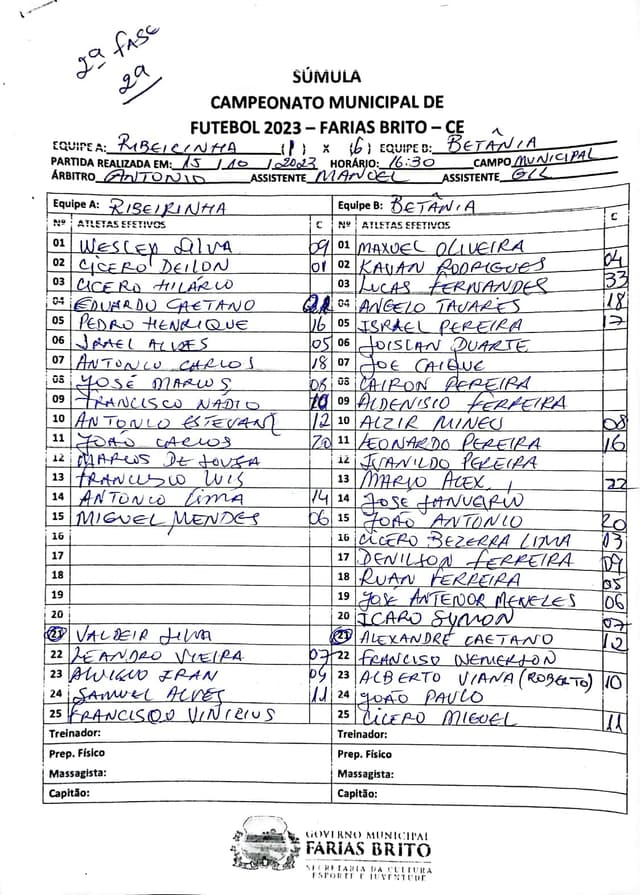 2ª FASE
2ª
SÚMULA
CAMPEONATO MUNICIPAL DE
FUTEBOL 2023 – FARIAS BRITO – CE
EQUIPE A: RIBEIRINHA (1) X (6) EQUIPE B: BETÂNIA
PARTIDA REALIZADA EM: 15 / 10 / 2023 HORÁRIO: 16:30 CAMPO MUNICIPAL
ÁRBITRO ANTONIO ASSISTENTE MANOEL ASSISTENTE GIL
Equipe A: RIBEIRINHA Equipe B: BETÂNIA
Nº ATLETAS EFETIVOS C Nº ATLETAS EFETIVOS C
01 WESLEY SILVA 09 01 MAXUEL OLIVEIRA
02 CICERO DEILON 01 02 KAUAN RODRIGUES 04
03 CICERO HILÁRIO 03 LUCAS FERNANDES 33
04 EDUARDO CAETANO 04 ANGELO TAVARES 18
05 PEDRO HENRIQUE 16 05 ISRAEL PEREIRA 17
06 ISRAEL ALVES 05 06 JOISLAN DUARTE
07 ANTONIO CARLOS 18 07 JOE CAIQUE
08 JOSÉ MARCOS 08 08 CAIRON PEREIRA
09 FRANCISCO NADIO 10 09 ALDENISIO FERREIRA
10 ANTONIO ESTEVANE 12 10 ALZIR MINEU 08
11 JOÃO CARLOS 20 11 LEONARDO PEREIRA 16
12 MARCOS DE SOUSA 12 IVANILDO PEREIRA
13 FRANCISCO LUIS 13 MARIO ALEX 22
14 ANTONIO LIMA 14 14 JOSÉ JANUERIO
15 MIGUEL MENDES 06 15 JOÃO ANTONIO 20
16 16 CICERO BEZERRA LIMA 13
17 17 DENILSON FERREIRA 09
18 18 RUAN FERREIRA 05
19 19 JOSÉ ANTENOR MENELES 06
20 20 ICARO SYMON 07
21 VALDEIR SILVA 21 ALEXANDRE CAETANO 12
22 LEANDRO VIEIRA 07 22 FRANCISO WEMERSON
23 IRAN 23 ALBERTO VIANA (ROBERTO) 10
24 SAMUEL ALVES 11 24 JOÃO PAULO
25 FRANCISCO VINICIUS 25 CICERO MIGUEL 11
Treinador: Treinador:
Prep. Físico Prep. Físico
Massagista: Massagista:
Capitão: Capitão:
GOVERNO MUNICIPAL
FARIAS BRITO
SECRETARIA DA CULTURA
ESPORTE E JUVENTUDE